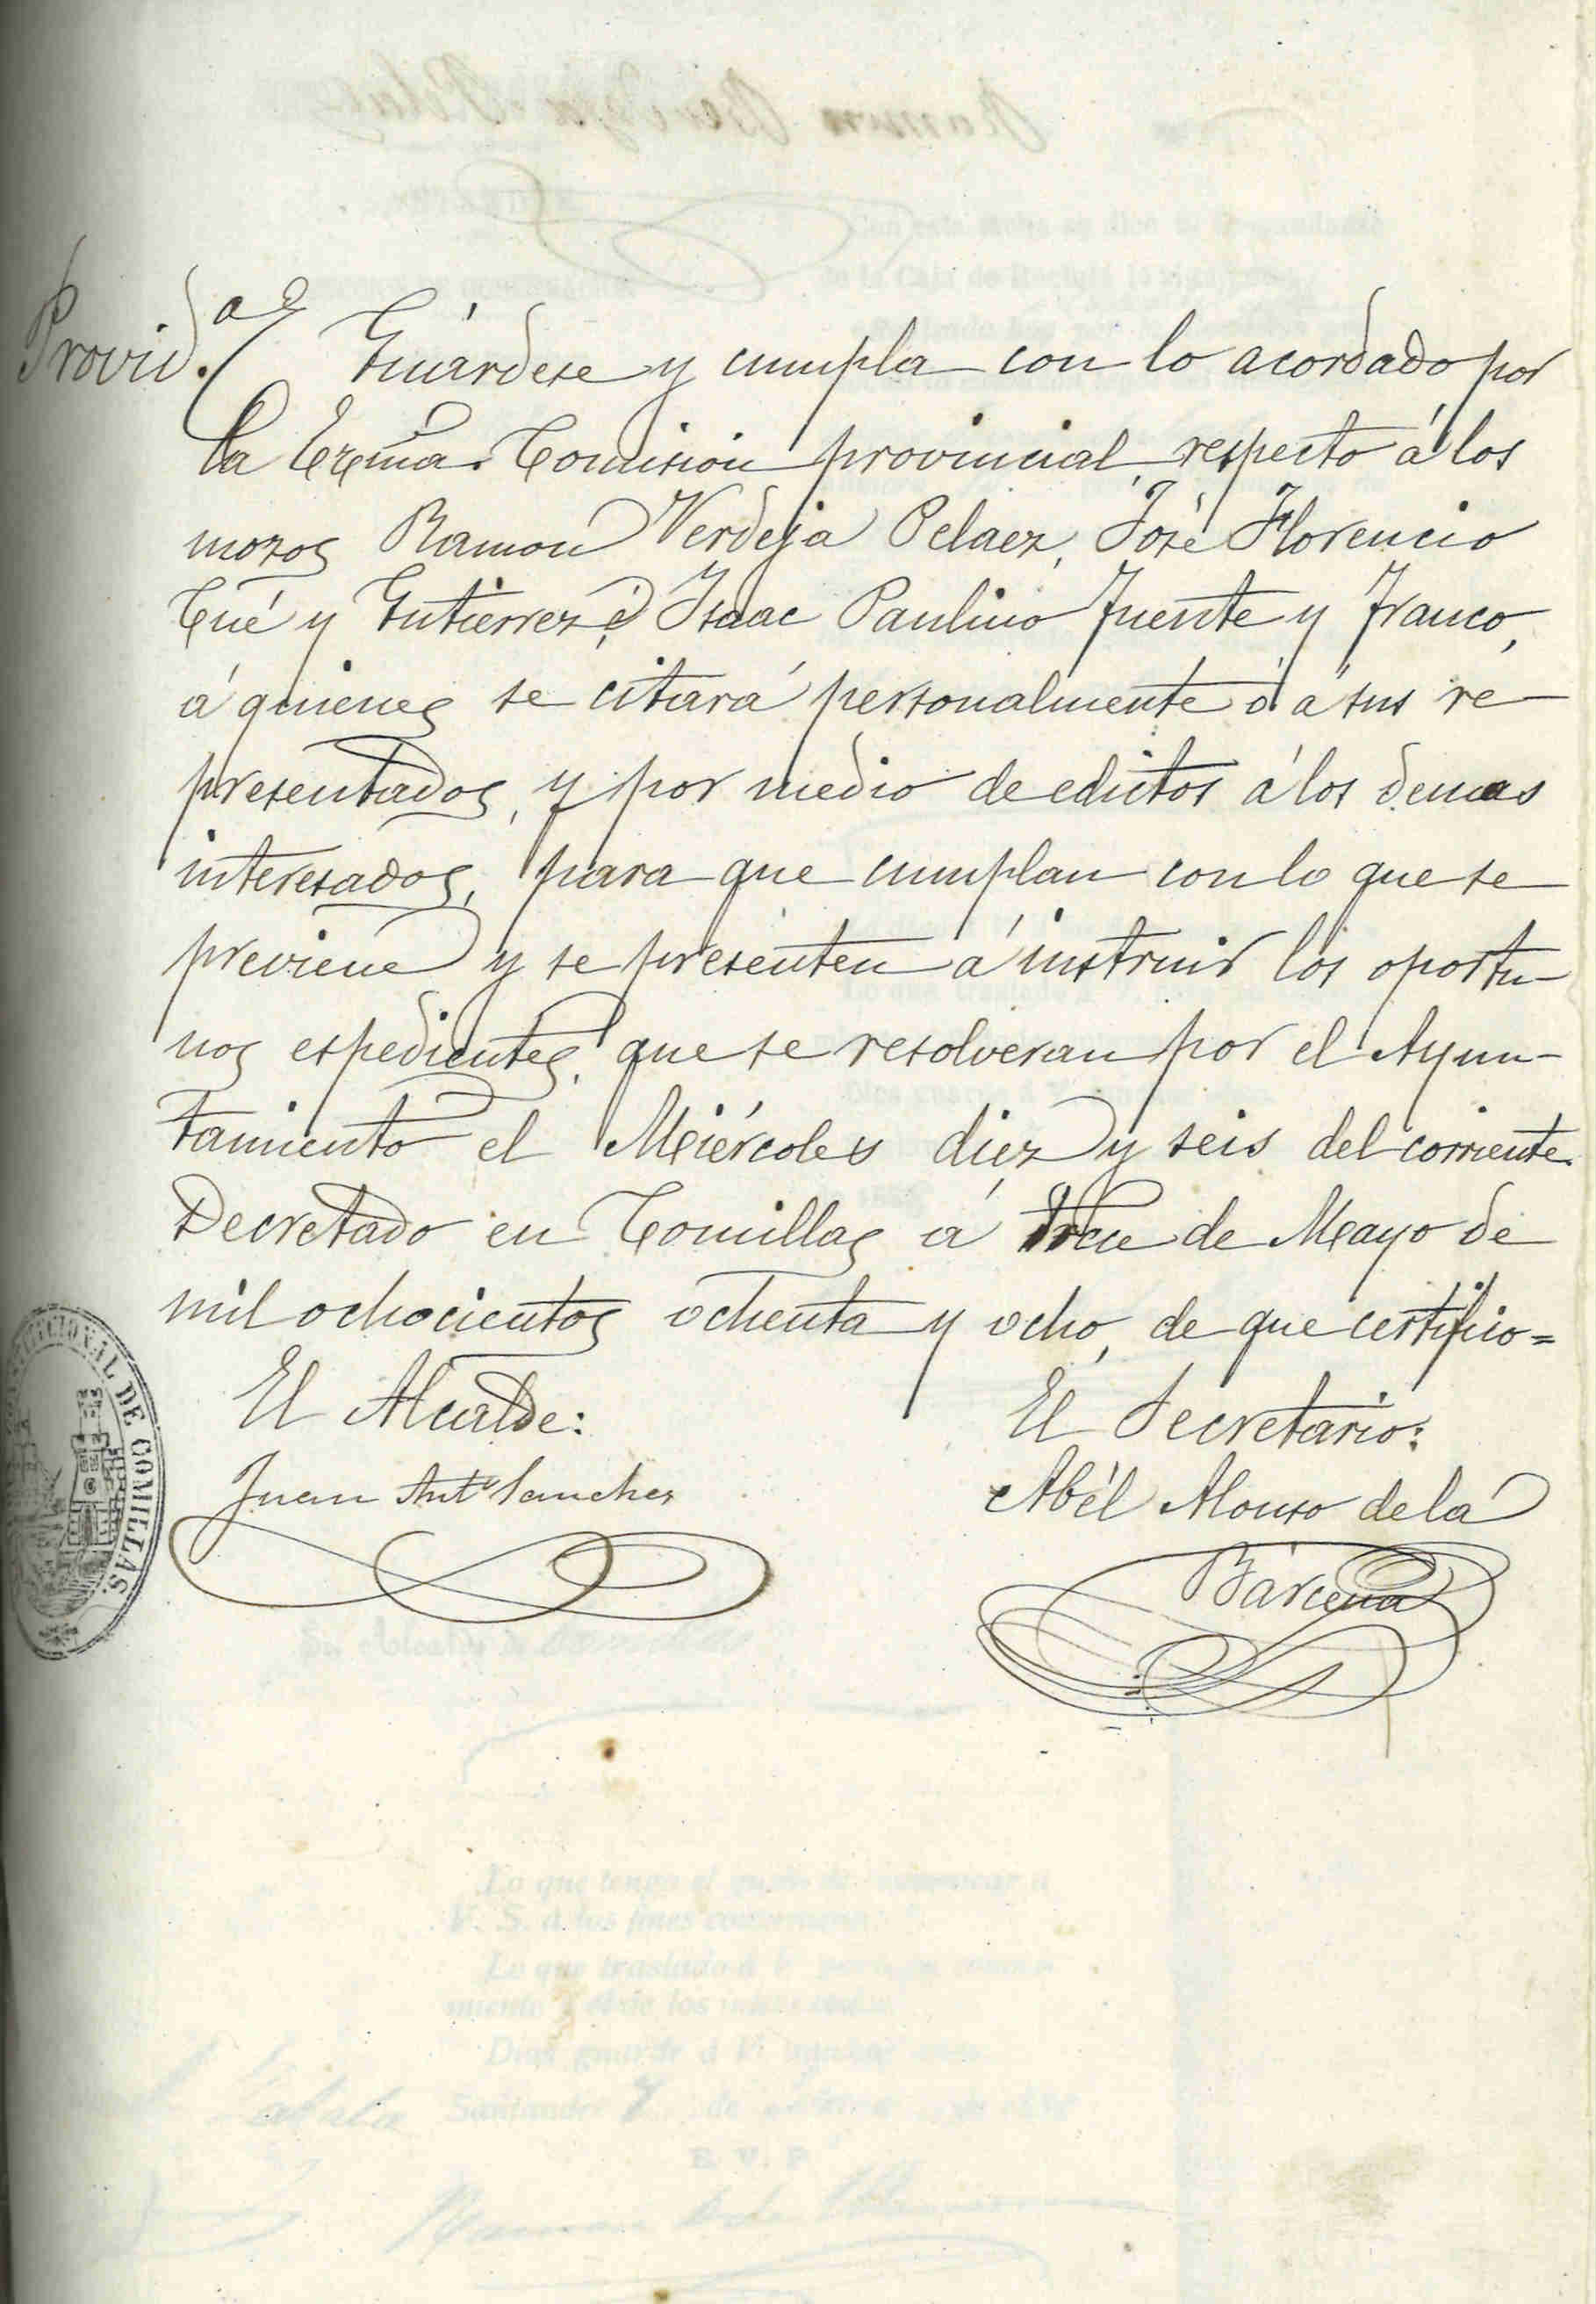 Provid.ª Guárdese y cumpla con lo acordado por
la Excma. Comisión provincial respecto á los
mozos Ramon Verdeja Pelaez, José Florencio
Cué y Gutierrez é Isaac Paulino Fuente y Franco,
á quienes se citará personalmente ó á sus re-
presentados, y por medio de edictos á los demas
interesados, para que cumplan con lo que se
previene y se presenten á instruir los oportu-
nos espedientes, que se resolveran por el Ayun-
tamiento el Miércoles diez y seis del corriente.
Decretado en Comillas á trece de Mayo de
mil ochocientos ochenta y ocho, de que certifico=
El Alcalde: El Secretario:
Juan Antº Sanchez Abél Alonso de la
Bárcena
CONSTITUCIONAL DE COMILLAS.